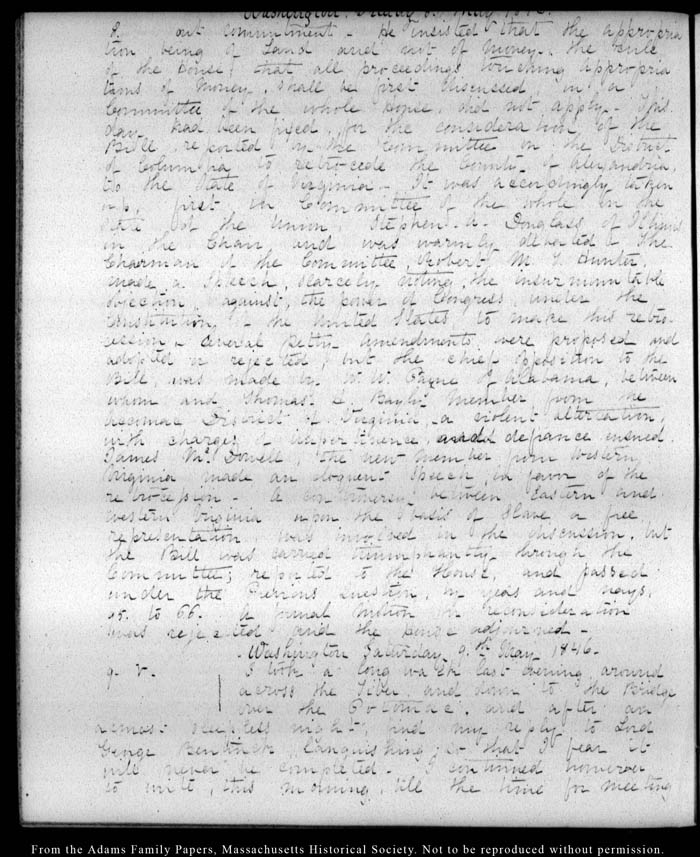 Washington. Friday 8. May 1846.
8. out commitment - He insisted that the appropria
tion being of Land and not of money, the rule
of the House, that all proceedings touching appropria
tions of money, shall be first discussed in a
Committee of the whole House, did not apply - This
day had been fixed, for the consideration of the
Bill reported by the Committee on the District
of Columbia to retrocede the County of Alexandria,
to the State of Virginia - It was accordingly taken
up, first in Committee of the whole on the
state of the Union, Stephen A. Douglass of Illinois
in the Chair and was warmly debated The
Chairman of the Committee, Robert M. T. Hunter,
made a Speech, scarcely noting, the insurmountable
objection, against, the power of Congress, under the
Constitution, of the United States, to make this retro
cession. Several petty amendments were proposed and
adopted or rejected, but the chief opposition to the
Bill, was made by W. W. Payne of Alabama, between
whom and Thomas H. Bayly member from the
Accomac District of Virginia, a violent altercation,
with charges of impertinence, and defiance ensued.
James McDowell, the new member from Western
Virginia made an eloquent speech, in favor of the
retrocession - A controversy between Eastern and
Western Virginia upon the basis of slave or free
representation was involved in the discussion, but
the Bill was carried triumphantly through the
Committee; reported to the House, and passed
under the Previous Question, by yeas and nays,
95. to 66. A formal motion for reconsideration
was rejected and the House adjourned -
Washington Saturday 9th May 1846-
9. V. I took a long walk last evening around
across the Tiber and down to the Bridge
over the Potomac, and after an
almost sleepless night find my reply to Lord
George Bentinck languishing, so that I fear it
will never be completed - I continued however
to write, this morning, till the time for meeting
From the Adams Family Papers, Massachusetts Historical Society. Not to be reproduced without permission.